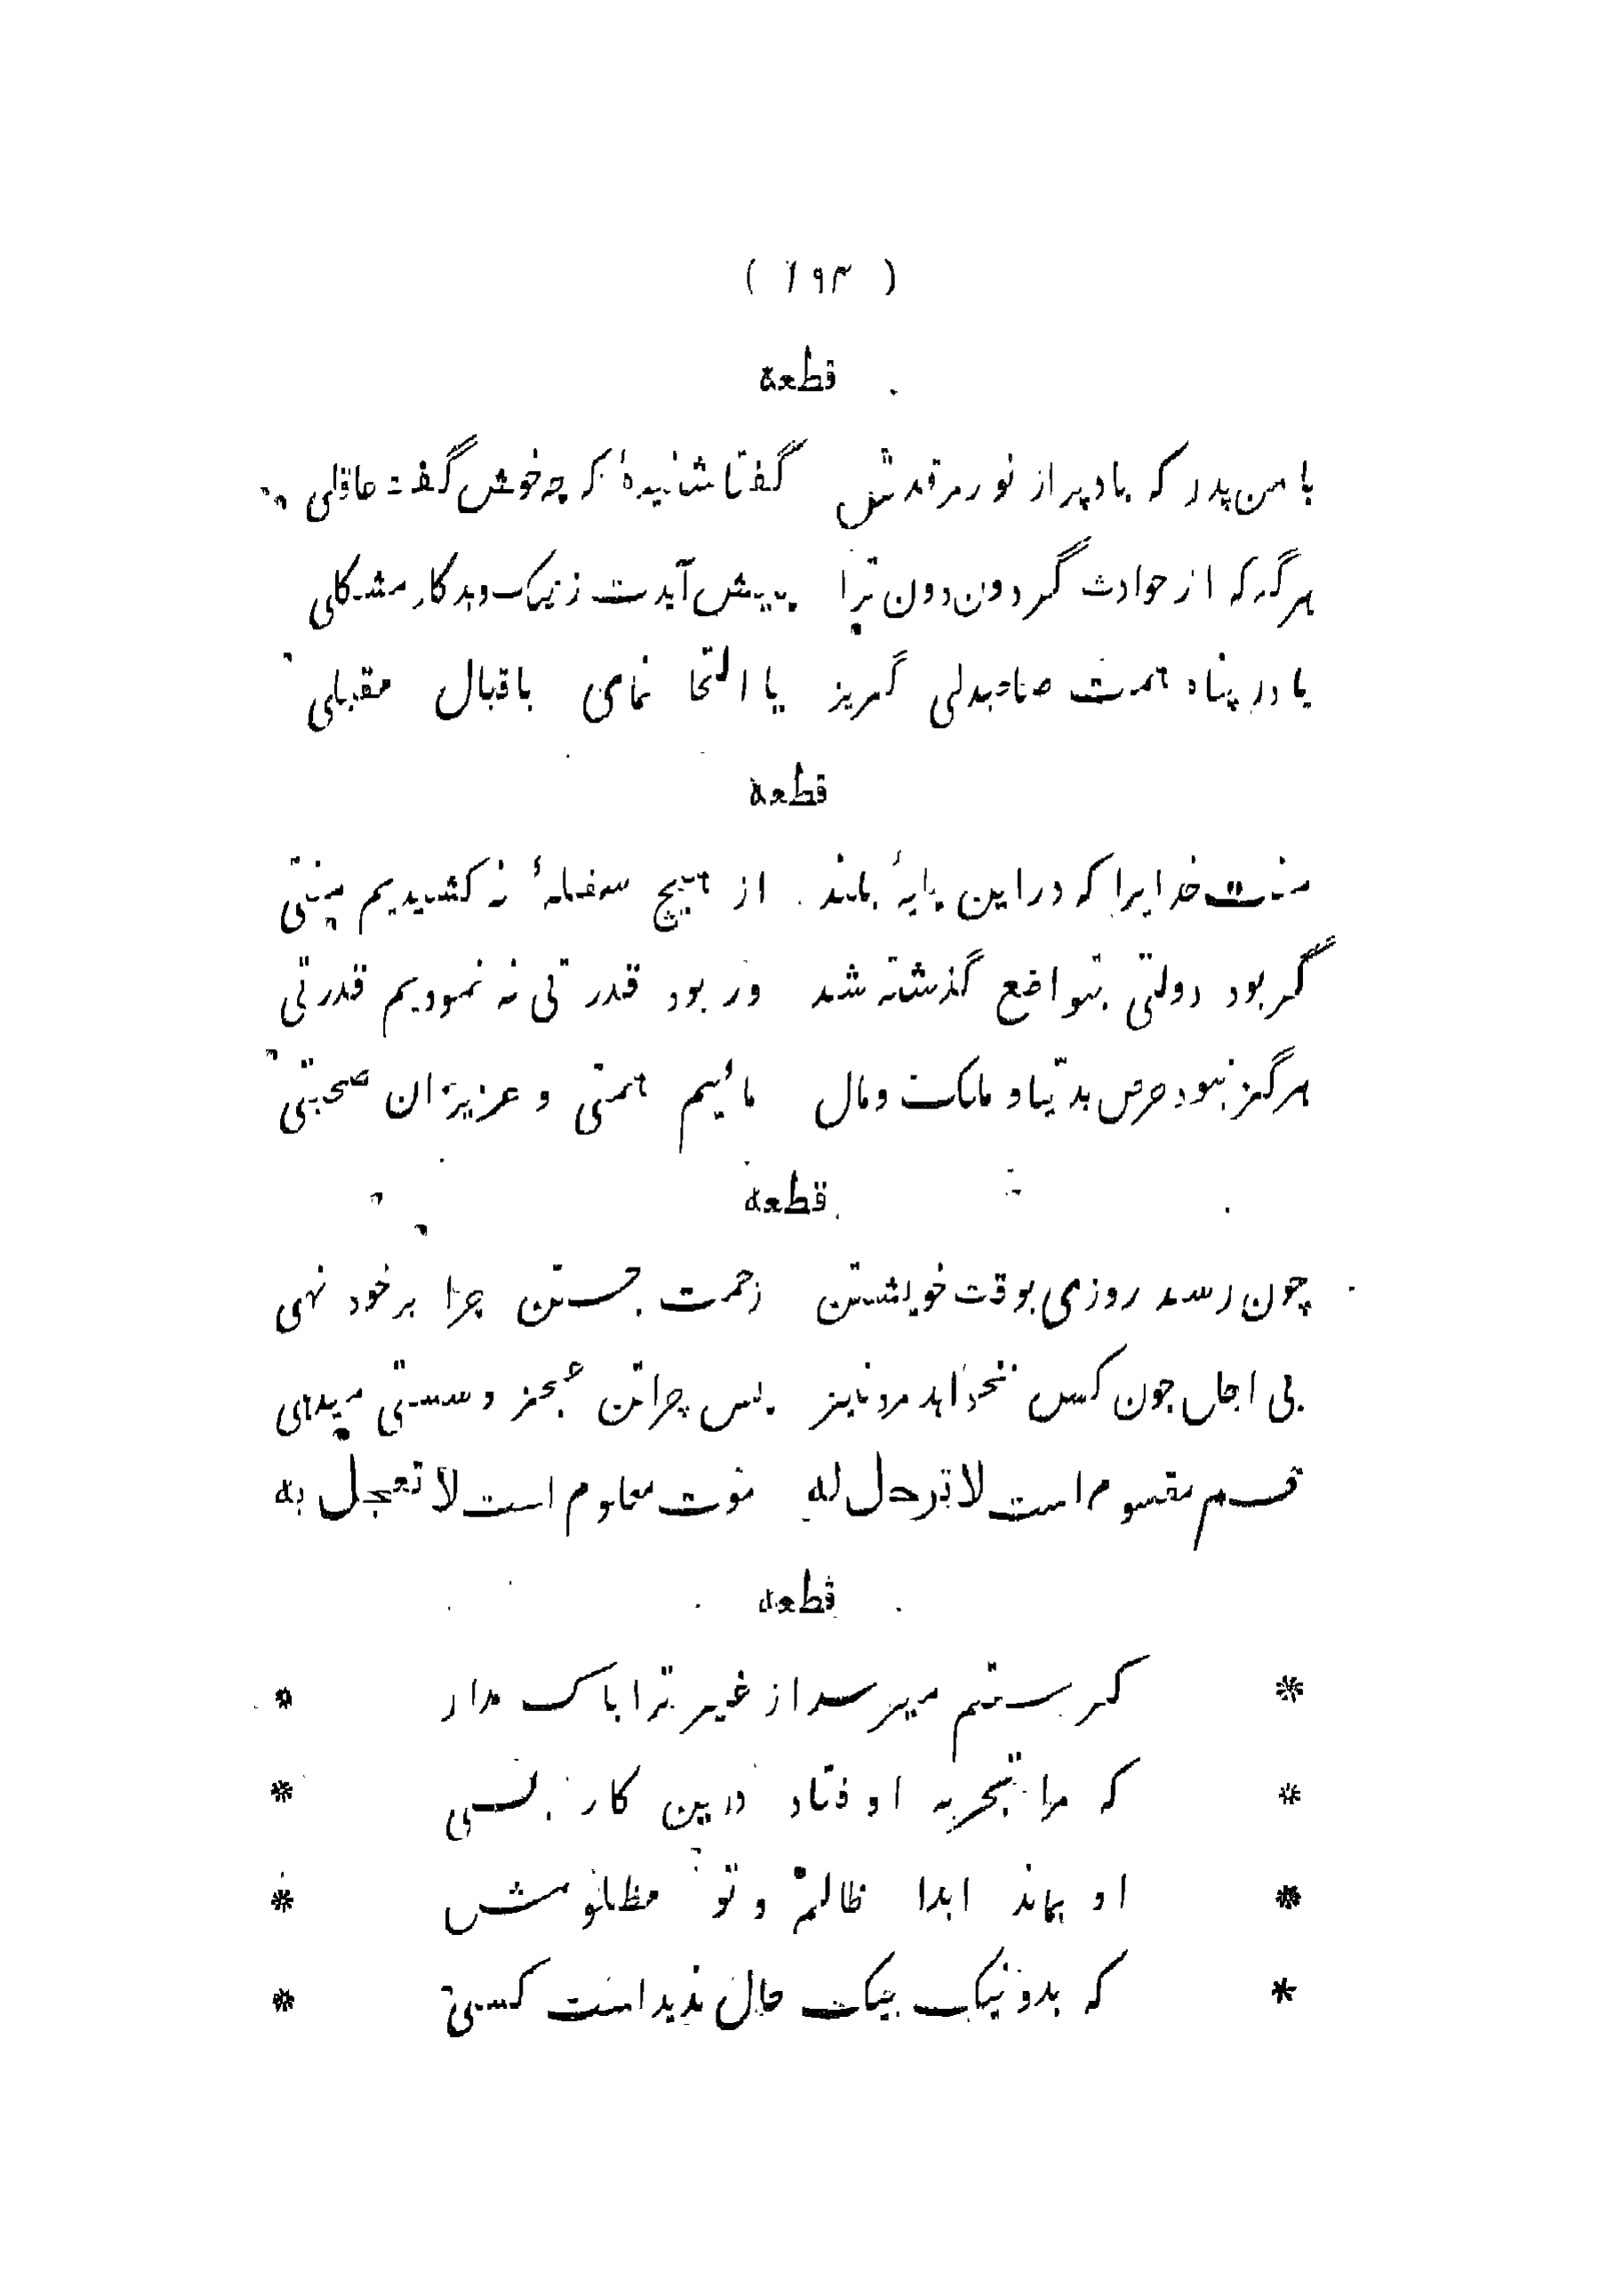 ( ۱۹۳ )
قطعة
با من پدر که باد پر از نور مرقدش گفتا شنیدهٔ که چه خوش گفت عاقلی
هر گه که از حوادث گردون دون ترا پیش آیدت ز نیک و بد کار مشکلی
یا در پناه همت صاحبدلی گریز یا التجا نمای باقبال مقبلی
قطعة
منت خدایرا که در این پایهٔ بلند از هیچ سفلهٔ نه کشیدیم منتی
گر بود دولتی بتواضع گذشته شد ور بود قدرتی نه نمودیم قدرتی
هرگز نبود حرص بدنیا و ملکت و مال مائیم همتی و عزیزان صحبتی
قطعة
چون رسد روزی بوقت خویشتن زحمت جستن چرا بر خود نهی
بی اجل چون کس نخواهد مرد نیز پس چرا تن عجز و سستی میدهی
قسم مقسوم است لا ترحل له موت معلوم است لا تعجل به
قطعه
* گر ستم میرسد از غیر ترا باک مدار *
* که مرا تجربه اوفتاد درین کار بسی *
* او بماند ابدا ظالم و تو مظلومش *
* که بد و نیک بیک حال ندیداست کسی *